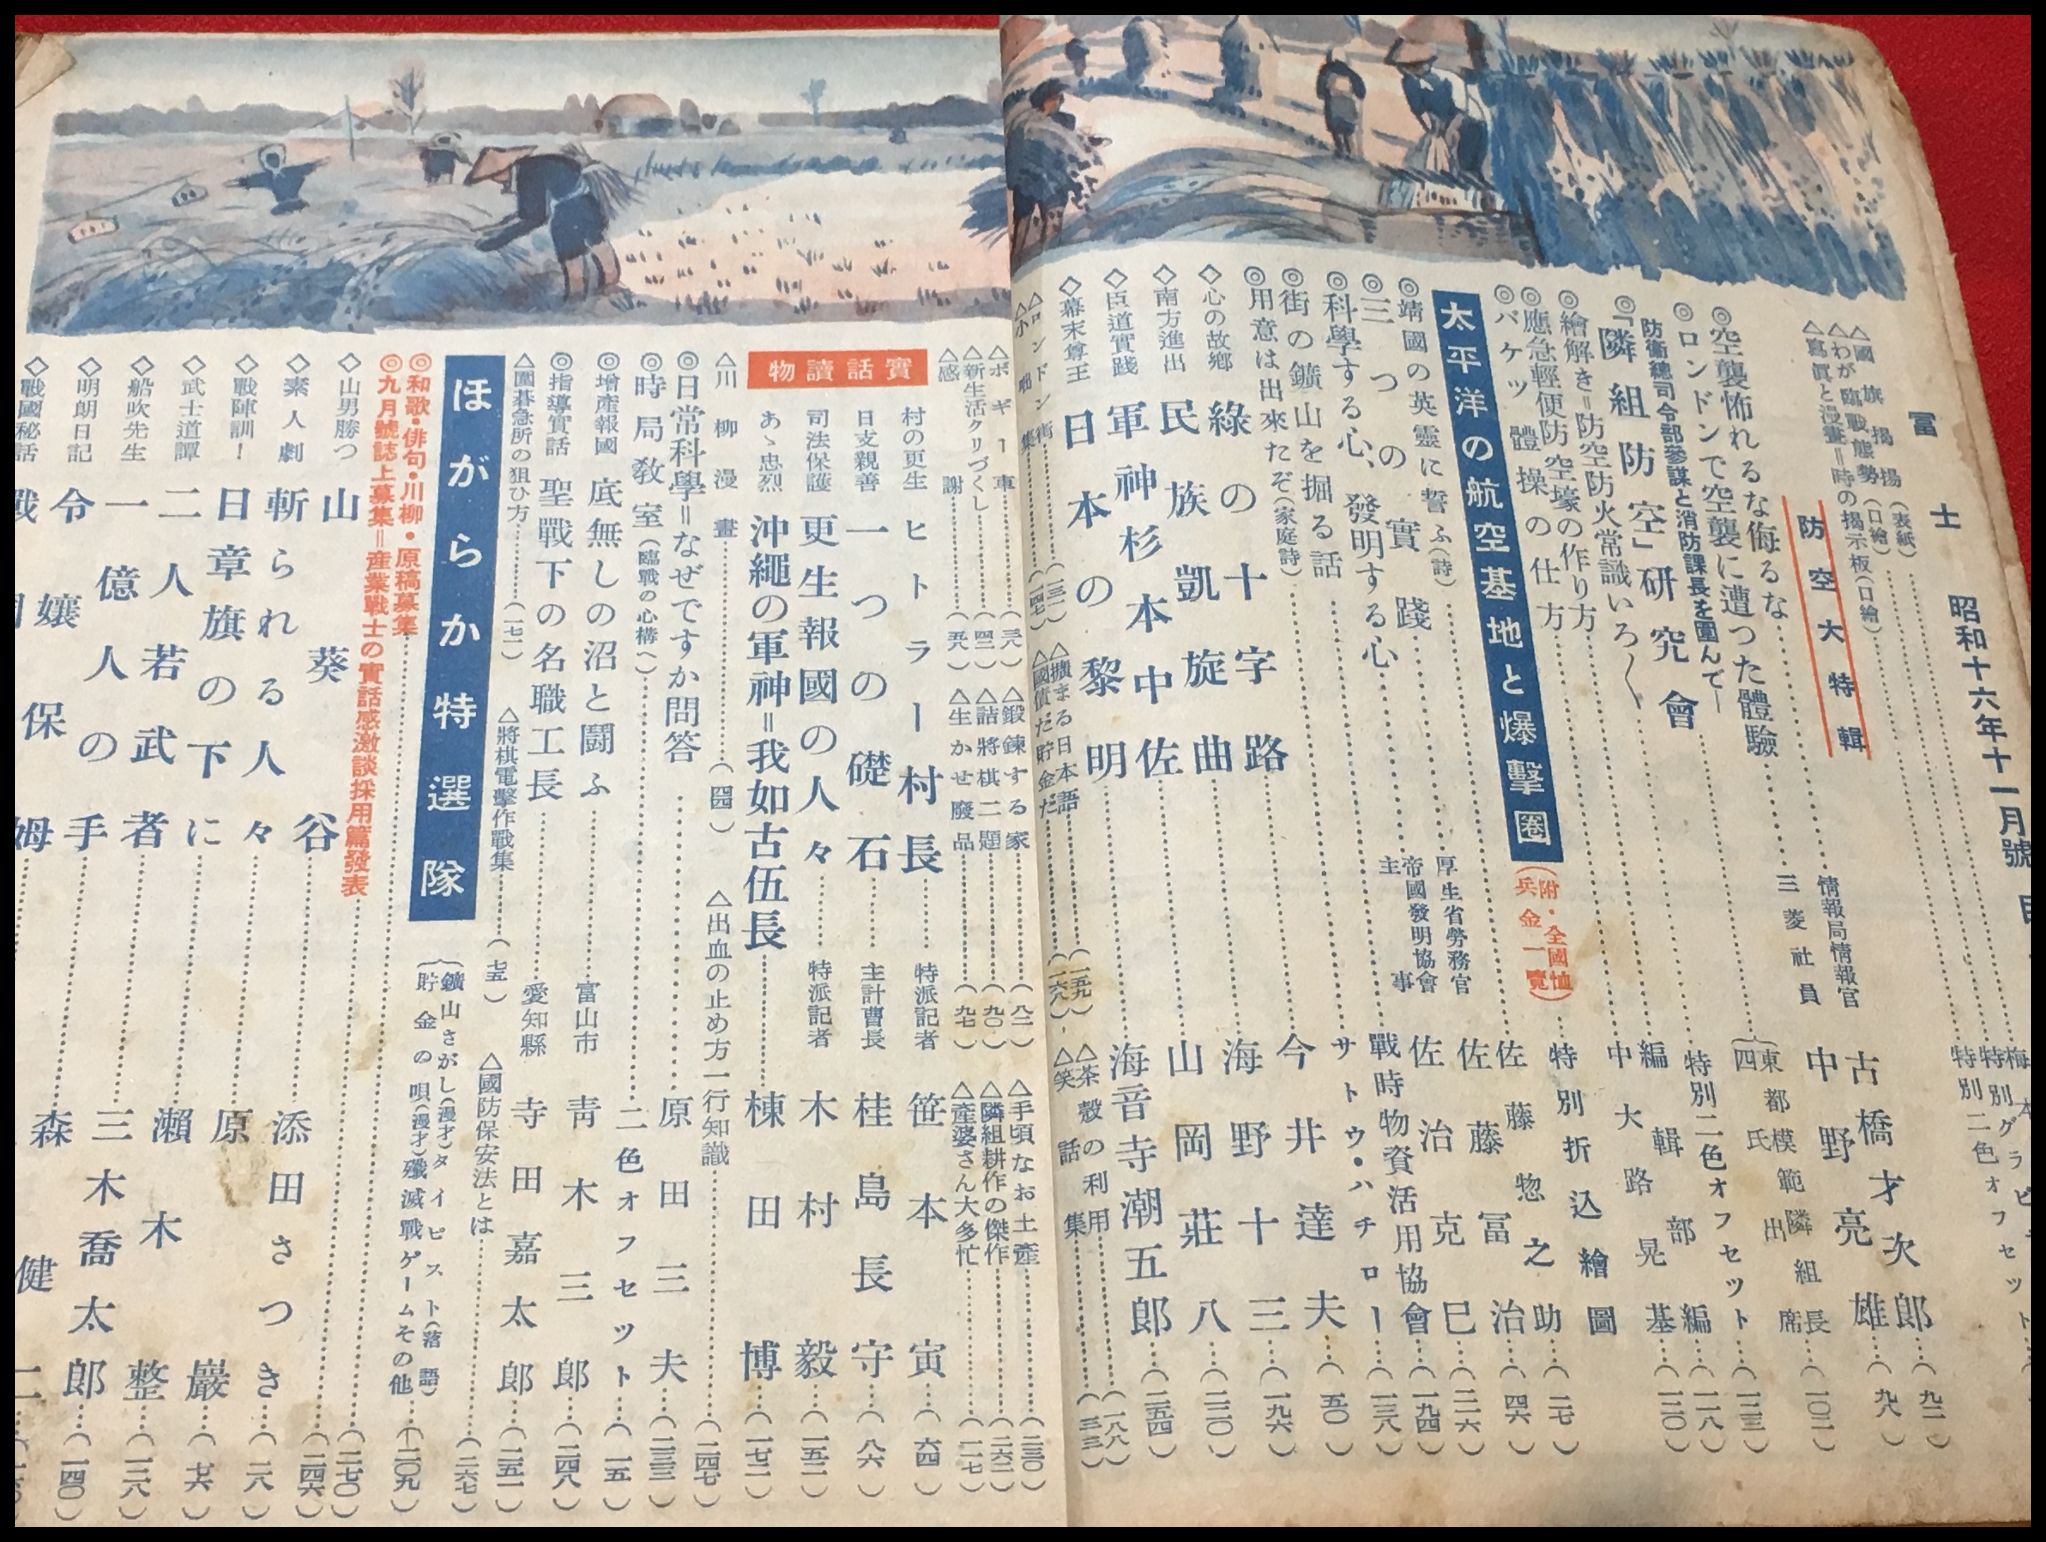 冨士 昭和十六年十一月號
△國旗揭揚(表紙)
△わが臨戰態勢(口繪)
△寫眞と漫畫=時の揭示板(口繪)
特別グラビヤ
特別二色オフセット
防空大特輯
◎空襲怖れるな侮るな 情報局情報官 古橋才次郎(九二)
◎ロンドンで空襲に遭つた體驗 三菱社員 中野亮雄(九八)
防衞總司令部參謀と消防課長を圍んで
「隣組防空」研究會 東都模範隣組長四氏出席(一〇二)
◎繪解き=防空防火常識いろ〱 特別二色オフセット
◎應急輕便防空壕の作り方 編輯部編(一一八)
◎バケツ體操の仕方 中大路晃基(一二〇)
太平洋の航空基地と爆擊圈 特別折込繪圖
(附・全國恤兵金一覽)
◎靖國の英靈に誓ふ(詩) 佐藤惣之助
◎三つの實踐 厚生省勞務官 佐藤冨治(四六)
◎科學する心、發明する心 帝國發明協會主事 佐治克巳(二一六)
◎街の鑛山を掘る話 戰時物資活用協會(一九四)
◎用意は出來たぞ(家庭詩) サトウ・ハチロー(一三八)
◇心の故鄉 綠の十字路 今井達夫(五〇)
◇南方進出 民族凱旋曲 海野十三(一九六)
◇臣道實踐 軍神杉本中佐 山岡莊八(二二〇)
◇幕末尊王 日本の黎明 海音寺潮五郎(二五四)
△ロンドン街
△小咄集
△擴まる日本語
△國債だ貯金だ
△茶殼の利用(一八八)
△笑話集(三三)
△ボギー車(三八)
△新生活クリづくし(四二)
△感謝(五八)
△鍛鍊する家(八二)
△詰將棋二題(九〇)
△生かせ廢品(九七)
△手頃なお土產(二三〇)
△隣組耕作の傑作(二六二)
△產婆さん大多忙(一二七)
實話讀物
村の更生 ヒトラー村長 特派記者 笹本寅(六四)
日支親善 一つの礎石 主計曹長 桂島長守(八六)
司法保護 更生報國の人々 特派記者 木村毅(一五二)
あゝ忠烈 沖繩の軍神=我如古伍長 棟田博(一七二)
△川柳漫畫
△出血の止め方一行知識(二四七)
◎日常科學=なぜですか問答 原田三夫(一三三)
◎時局敎室(臨戰の心構へ) 二色オフセット(一五)
◎增產報國 底無しの沼と鬪ふ 富山市 靑木三郎(二四八)
◎指導實話 聖戰下の名職工長 愛知縣 寺田嘉太郎(二五一)
△圍碁急所の狙ひ方
△將棋電擊作戰集
△國防保安法とは(二六七)
ほがらか特選隊
鑛山さがし(漫才)タイピスト(落語)
貯金の唄(漫才)殲滅戰ゲームその他(二〇九)
◎和歌・俳句・川柳・原稿募集
◎九月號誌上募集=產業戰士の實話感激談採用篇發表(二七〇)
◇山男勝つ 山葵谷 添田さつき(二四六)
◇素人劇 斬られる人々 原巖
◇戰陣訓! 日章旗の下に
◇武士道譚 二人若武者 瀨木整
◇船吹先生 一億人の手 三木喬太郎
◇明朗日記 令孃保姆 森健二
◇戰國秘話